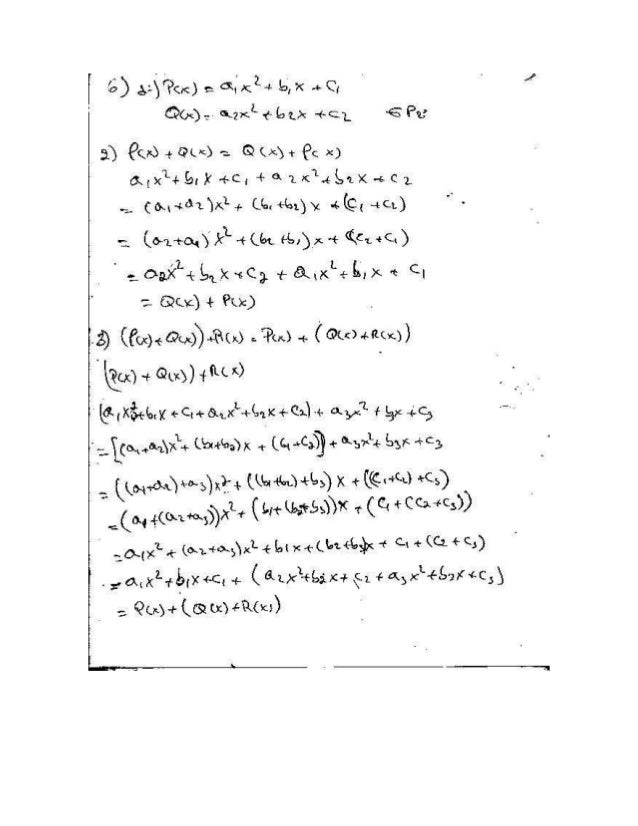 6) si) P(x) = a₁x² + b₁x + C₁
Q(x) = a₂x² + b₂x + C₂ ∈ P₂
2) P(x) + Q(x) = Q(x) + P(x)
a₁x² + b₁x + C₁ + a₂x² + b₂x + C₂
= (a₁+a₂)x² + (b₁+b₂)x + (C₁+C₂)
= (a₂+a₁)x² + (b₂+b₁)x + (C₂+C₁)
= a₂x² + b₂x + C₂ + a₁x² + b₁x + C₁
= Q(x) + P(x)
3) (P(x)+Q(x))+R(x) = P(x) + (Q(x)+R(x))
(P(x) + Q(x)) + R(x)
(a₁x²+b₁x + C₁ + a₂x² + b₂x + C₂) + a₃x² + b₃x + C₃
= [(a₁+a₂)x² + (b₁+b₂)x + (C₁+C₂)] + a₃x² + b₃x + C₃
= ((a₁+a₂)+a₃)x² + ((b₁+b₂)+b₃)x + ((C₁+C₂)+C₃)
= (a₁+(a₂+a₃))x² + (b₁+(b₂+b₃))x + (C₁+(C₂+C₃))
= a₁x² + (a₂+a₃)x² + b₁x + (b₂+b₃)x + C₁ + (C₂+C₃)
= a₁x² + b₁x + C₁ + (a₂x² + b₂x + C₂ + a₃x² + b₃x + C₃)
= P(x) + (Q(x)+R(x))